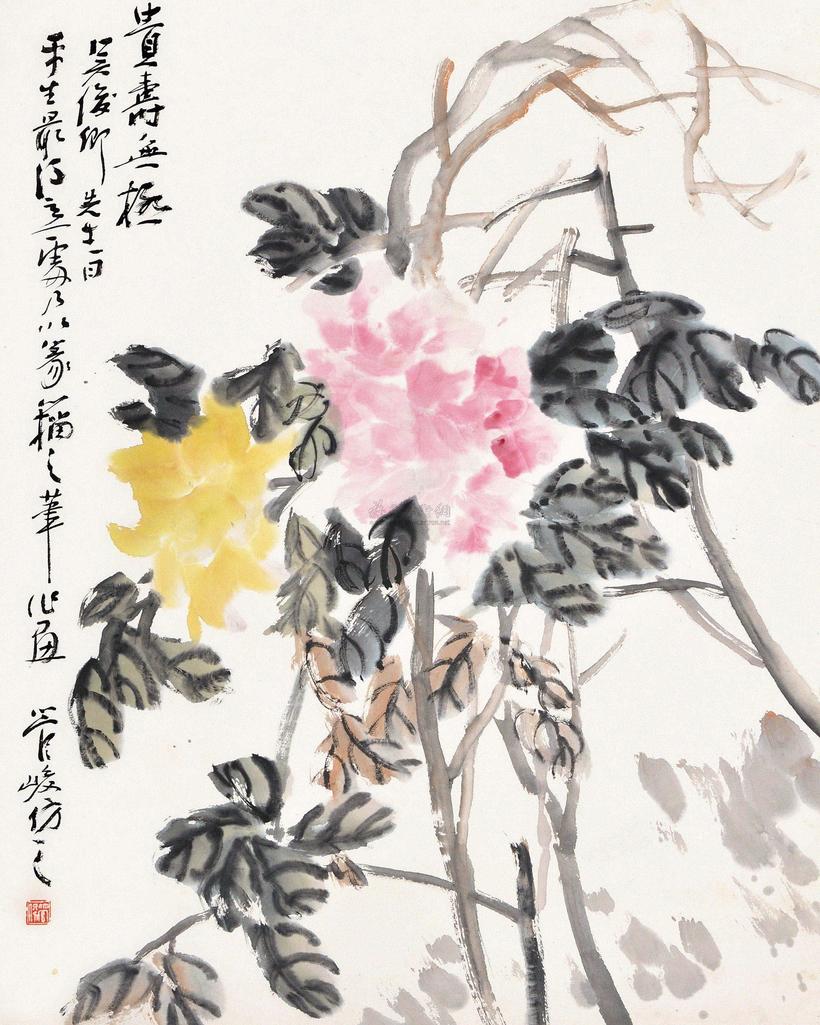 貴壽無極
吴俊卿先生自
平生最得意處乃以篆籀之筆作画 管峻仿之